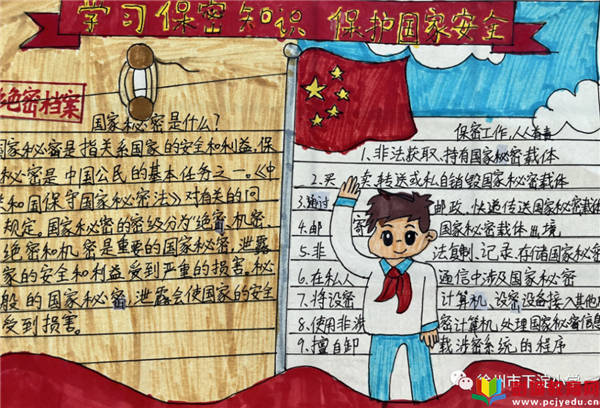 学习保密知识 保护国家安全
绝密档案
国家秘密是什么?
国家秘密是指关系国家的安全和利益,保
秘密是中国公民的基本任务之一。《中
和国保守国家秘密法》对有关的问
规定。国家秘密的密级分为绝密、机密、
绝密和机密是重要的国家秘密,泄露
家的安全和利益受到严重的损害。秘
般的国家秘密,泄露会使国家的安全
受到损害。
保密工作,人人有责
1.非法获取、持有国家秘密载体
2.买卖、转送或私自销毁国家秘密载体
3.通过 邮政、快递传送国家秘密载体
4.邮寄 国家秘密载体出境
5.非 法复制、记录、存储国家秘密
6.在私人 通信中涉及国家秘密
7.将设密 计算机、设密设备接入其他
8.使用非涉 密计算机处理国家秘密信息
9.擅自卸 载涉密系统的程序
徐州市下淀小学
www.pcjyedu.cn